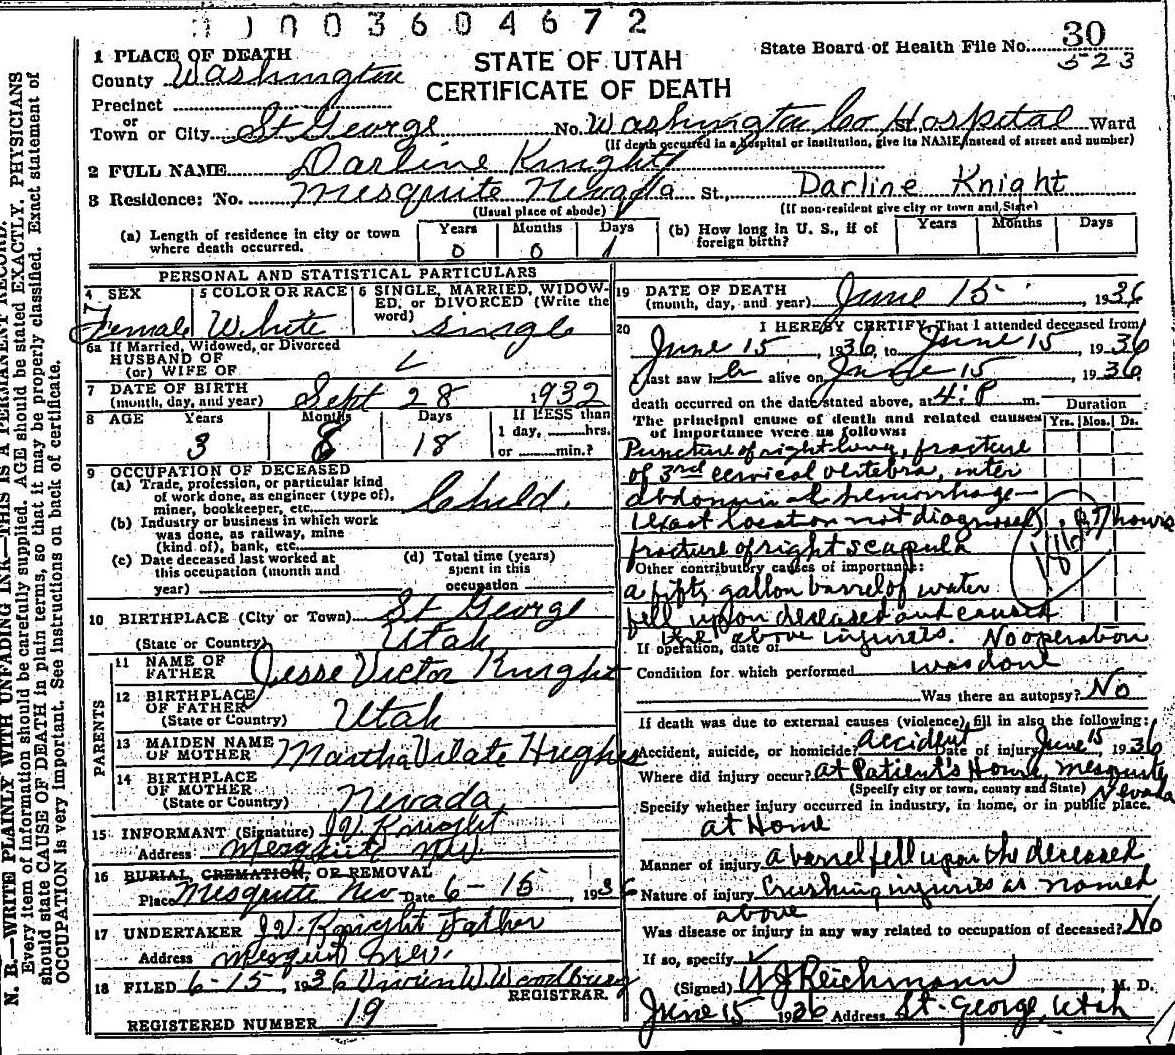 0003604672
State Board of Health File No. 30
523
1 PLACE OF DEATH
County Washington
STATE OF UTAH
CERTIFICATE OF DEATH
Precinct
or
Town or City St George No. Washington Co Hospital St. Ward
(If death occurred in a hospital or institution, give its NAME instead of street and number)
2 FULL NAME Darline Knight
3 Residence: No. Mesquite Nevada St., Darline Knight
(Usual place of abode) (If non-resident give city or town and State)
(a) Length of residence in city or town where death occurred. Years 0 Months 0 Days 1
(b) How long in U. S., if of foreign birth? Years Months Days
PERSONAL AND STATISTICAL PARTICULARS
4 SEX Female
5 COLOR OR RACE White
6 SINGLE, MARRIED, WIDOWED, or DIVORCED (Write the word) Single
6a If Married, Widowed, or Divorced
HUSBAND OF
(or) WIFE OF
7 DATE OF BIRTH
(month, day, and year) Sept 28 1932
8 AGE Years 3 Months 8 Days 18 If LESS than 1 day, hrs. or min.?
9 OCCUPATION OF DECEASED
(a) Trade, profession, or particular kind of work done, as engineer (type of), miner, bookkeeper, etc. Child.
(b) Industry or business in which work was done, as railway, mine (kind of), bank, etc.
(c) Date deceased last worked at this occupation (month and year)
(d) Total time (years) spent in this occupation
10 BIRTHPLACE (City or Town) St George
(State or Country) Utah
PARENTS
11 NAME OF FATHER Jesse Victor Knight
12 BIRTHPLACE OF FATHER
(State or Country) Utah
13 MAIDEN NAME OF MOTHER Martha Vilate Hughes
14 BIRTHPLACE OF MOTHER
(State or Country) Nevada
15 INFORMANT (Signature) J V Knight
Address Mesquite Nev.
16 BURIAL, CREMATION, OR REMOVAL
Place Mesquite Nev Date 6-15, 1936
17 UNDERTAKER J V. Knight Father
Address Mesquite Nev.
18 FILED 6-15, 1936 W. Woodbury
REGISTRAR.
REGISTERED NUMBER 19
19 DATE OF DEATH
(month, day, and year) June 15, 1936
20 I HEREBY CERTIFY, That I attended deceased from
June 15, 1936, to June 15, 1936
I last saw her alive on June 15, 1936
death occurred on the date stated above, at 4:P m.
The principal cause of death and related causes of importance were as follows: Duration Yrs. Mos. Ds.
Puncture of right lung, fracture
of 3rd cervical vertebra, inter
abdominal hemorrhage—
(exact location not diagnosed) hours
fracture of right scapula
Other contributory causes of importance:
a fifty gallon barrel of water
fell upon deceased and caused
the above injuries. No operation
If operation, date of
Condition for which performed was done
Was there an autopsy? No
If death was due to external causes (violence) fill in also the following:
Accident, suicide, or homicide? accident Date of injury June 15, 1936
Where did injury occur? at Patient's Home, Mesquite
(Specify city or town, county and State) Nevada
Specify whether injury occurred in industry, in home, or in public place.
at Home
Manner of injury a barrel fell upon the deceased
Nature of injury Crushing injuries as named
above
Was disease or injury in any way related to occupation of deceased? No
If so, specify
(Signed) W J Reichmann, M. D.
June 15 1936 Address St. George, Utah
N. B.—WRITE PLAINLY WITH UNFADING INK—THIS IS A PERMANENT RECORD.
Every item of information should be carefully supplied. AGE should be stated EXACTLY. PHYSICIANS
should state CAUSE OF DEATH in plain terms, so that it may be properly classified. Exact statement of
OCCUPATION is very important. See instructions on back of certificate.